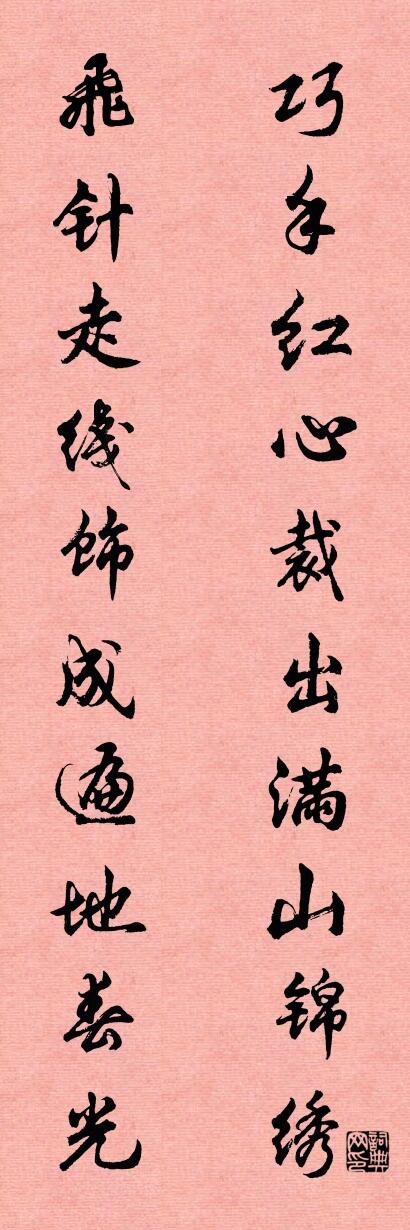 巧手红心裁出满山锦绣
飞针走线饰成遍地春光
词典网印